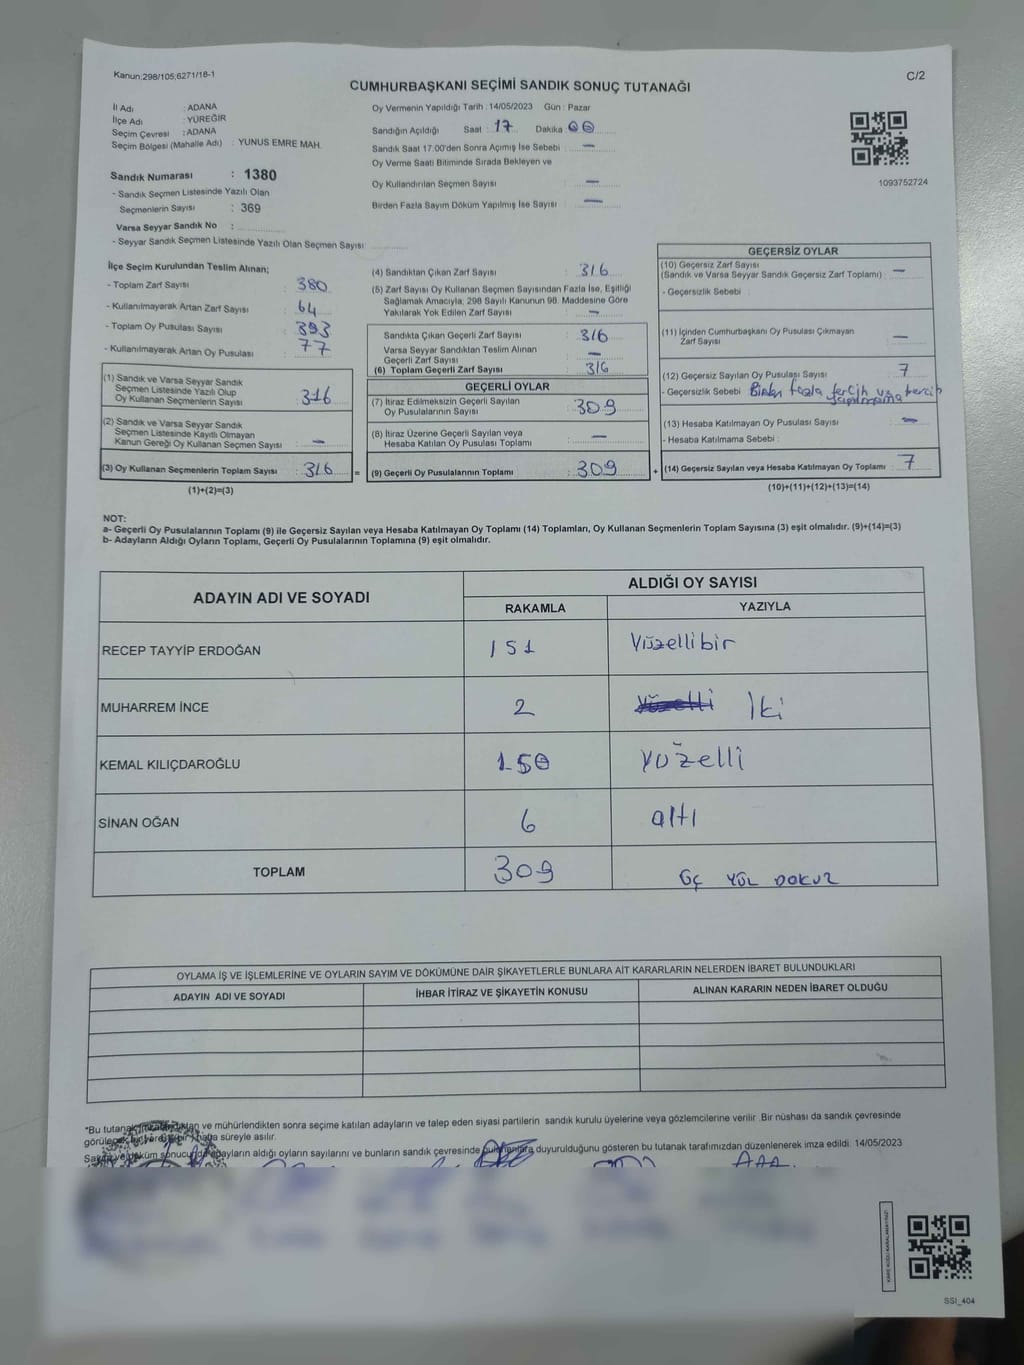 Kanun:298/105;6271/18-1
C/2
CUMHURBAŞKANI SEÇİMİ SANDIK SONUÇ TUTANAĞI
İl Adı : ADANA
İlçe Adı : YÜREĞİR
Seçim Çevresi : ADANA
Seçim Bölgesi (Mahalle Adı) : YUNUS EMRE MAH.
Sandık Numarası : 1380
- Sandık Seçmen Listesinde Yazılı Olan
Seçmenlerin Sayısı : 369
Varsa Seyyar Sandık No :
- Seyyar Sandık Seçmen Listesinde Yazılı Olan Seçmen Sayısı
Oy Vermenin Yapıldığı Tarih : 14/05/2023 Gün : Pazar
Sandığın Açıldığı Saat : 17 Dakika 00
Sandık Saat 17:00'den Sonra Açımış İse Sebebi : —
Oy Verme Saati Bitiminde Sırada Bekleyen ve
Oy Kullandırılan Seçmen Sayısı : —
Birden Fazla Sayım Döküm Yapılmış İse Sayısı : —
1093752724
İlçe Seçim Kurulundan Teslim Alınan;
- Toplam Zarf Sayısı : 380
- Kullanılmayarak Artan Zarf Sayısı : 64
- Toplam Oy Pusulası Sayısı : 393
- Kullanılmayarak Artan Oy Pusulası : 77
(1) Sandık ve Varsa Seyyar Sandık
Seçmen Listesinde Yazılı Olup
Oy Kullanan Seçmenlerin Sayısı : 316
(2) Sandık ve Varsa Seyyar Sandık
Seçmen Listesinde Kayıtlı Olmayan
Kanun Gereği Oy Kullanan Seçmen Sayısı : —
(3) Oy Kullanan Seçmenlerin Toplam Sayısı : 316 =
(1)+(2)=(3)
(4) Sandıktan Çıkan Zarf Sayısı : 316
(5) Zarf Sayısı Oy Kullanan Seçmen Sayısından Fazla İse, Eşitliği
Sağlamak Amacıyla; 298 Sayılı Kanunun 98. Maddesine Göre
Yakılarak Yok Edilen Zarf Sayısı : —
Sandıkta Çıkan Geçerli Zarf Sayısı : 316
Varsa Seyyar Sandıktan Teslim Alınan
Geçerli Zarf Sayısı : —
(6) Toplam Geçerli Zarf Sayısı : 316
GEÇERLİ OYLAR
(7) İtiraz Edilmeksizin Geçerli Sayılan
Oy Pusulalarının Sayısı : 309
(8) İtiraz Üzerine Geçerli Sayılan veya
Hesaba Katılan Oy Pusulası Toplamı : —
(9) Geçerli Oy Pusulalarının Toplamı : 309 +
GEÇERSİZ OYLAR
(10) Geçersiz Zarf Sayısı
(Sandık ve Varsa Seyyar Sandık Geçersiz Zarf Toplamı) : —
- Geçersizlik Sebebi :
(11) İçinden Cumhurbaşkanı Oy Pusulası Çıkmayan
Zarf Sayısı : —
(12) Geçersiz Sayılan Oy Pusulası Sayısı : 7
- Geçersizlik Sebebi : Birden fazla tercih ve tercih
yapılmama
(13) Hesaba Katılmayan Oy Pusulası Sayısı : —
- Hesaba Katılmama Sebebi :
(14) Geçersiz Sayılan veya Hesaba Katılmayan Oy Toplamı : 7
(10)+(11)+(12)+(13)=(14)
NOT:
a- Geçerli Oy Pusulalarının Toplamı (9) ile Geçersiz Sayılan veya Hesaba Katılmayan Oy Toplamı (14) Toplamları, Oy Kullanan Seçmenlerin Toplam Sayısına (3) eşit olmalıdır. (9)+(14)=(3)
b- Adayların Aldığı Oyların Toplamı, Geçerli Oy Pusulalarının Toplamına (9) eşit olmalıdır.
ADAYIN ADI VE SOYADI
ALDIĞI OY SAYISI
RAKAMLA YAZIYLA
RECEP TAYYİP ERDOĞAN 151 Yüzellibir
MUHARREM İNCE 2 Yüzelli İki
KEMAL KILIÇDAROĞLU 150 yüzelli
SİNAN OĞAN 6 altı
TOPLAM 309 ÜÇ YÜZ DOKUZ
OYLAMA İŞ VE İŞLEMLERİNE VE OYLARIN SAYIM VE DÖKÜMÜNE DAİR ŞİKAYETLERLE BUNLARA AİT KARARLARIN NELERDEN İBARET BULUNDUKLARI
ADAYIN ADI VE SOYADI İHBAR İTİRAZ VE ŞİKAYETİN KONUSU ALINAN KARARIN NEDEN İBARET OLDUĞU
*Bu tutanak ve mühürlendikten sonra seçime katılan adayların ve talep eden siyasi partilerin sandık kurulu üyelerine veya gözlemcilerine verilir .Bir nüshası da sandık çevresinde
görülecek bir yere bir hafta süreyle asılır.
Sayım ve döküm sonucunda adayların aldığı oyların sayılarını ve bunların sandık çevresinde duyurulduğunu gösteren bu tutanak tarafımızdan düzenlenerek imza edildi. 14/05/2023
SSİ_404